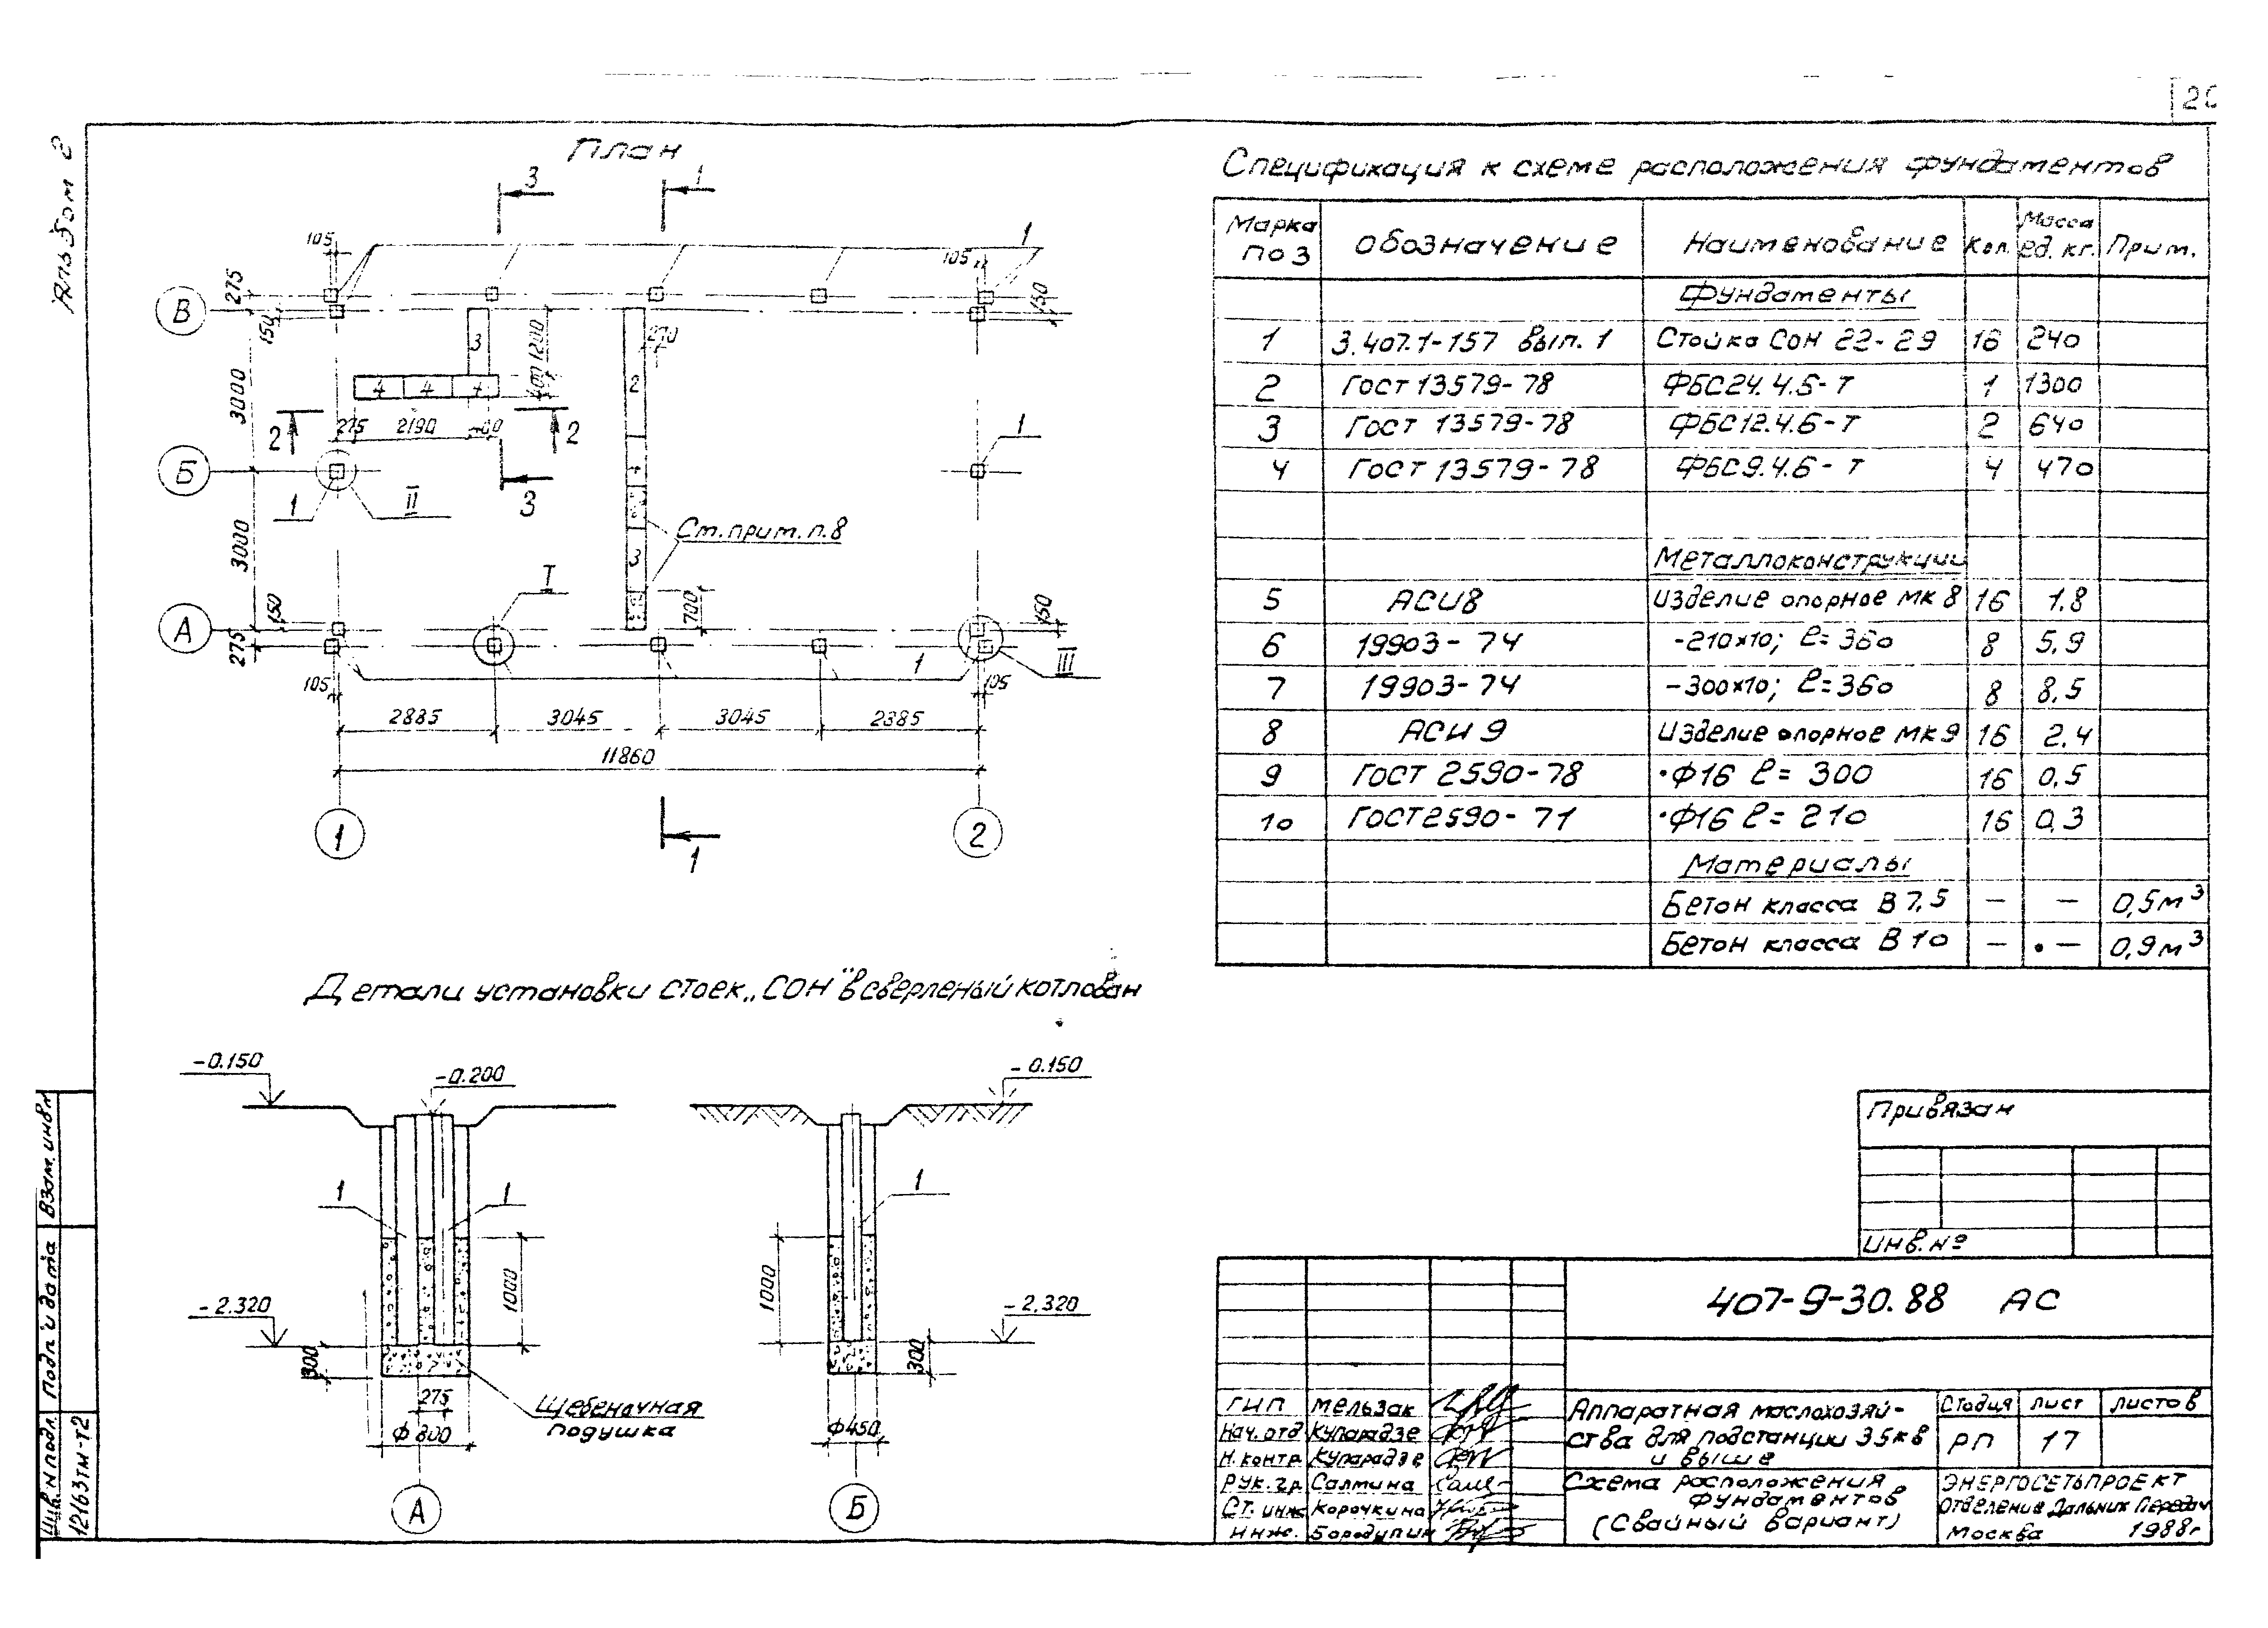 Альбом 2
План
3
1
105
1
105
275
150
В
150
3
270
1200
400
2
3000
4 4 4
2
275 2190 400
2
1
Б
1
II
3
4
3000
См. прим. п. 8
I
3
150
700
150
А
275
1
III
105
105
2885 3045 3045 2885
11860
1
2
1
Спецификация к схеме расположения фундаментов
Марка поз | Обозначение | Наименование | Кол. | Масса ед. кг. | Прим.
Фундаменты
1 3.407.1-157 вып. 1 Стойка СОН 22-29 16 240
2 Гост 13579-78 ФБС24.4.6-Т 1 1300
3 Гост 13579-78 ФБС12.4.6-Т 2 640
4 Гост 13579-78 ФБС9.4.6-Т 4 470
Металлоконструкции
5 АСИ8 Изделие опорное МК 8 16 1.8
6 19903-74 -210х10; ℓ=360 8 5,9
7 19903-74 -300х10; ℓ=360 8 8,5
8 АСИ 9 Изделие опорное МК 9 16 2.4
9 ГОСТ 2590-78 •Ф16 ℓ= 300 16 0,5
10 ГОСТ 2590-71 •Ф16 ℓ= 210 16 0,3
Материалы
Бетон класса В 7,5 — — 0,5м³
Бетон класса В 10 — — 0,9м³
Детали установки стоек „СОН" в сверленый котлован
-0.150
-0.200
1
1
1000
-2.320
300
275
Ф 800
Щебеночная
подушка
А
-0.150
1
1000
-2.320
300
Ф450
Б
Привязан
Инв. №
407-9-30.88 АС
ГИП Мельзак
Нач. отд. Купарадзе
Н. контр. Купарадзе
Рук. гр. Салтина
Ст. инж. Корочкина
Инж. Бородулин
Аппаратная маслохозяй-
ства для подстанции 35кв
и выше
Стадия Лист Листов
РП 17
Схема расположения
фундаментов
(Свайный вариант)
ЭНЕРГОСЕТЬПРОЕКТ
Отделение Дальних Передач
Москва 1988г
Взам. инв. №
Подп. и дата
Инв. № подл.
12163тм-т2